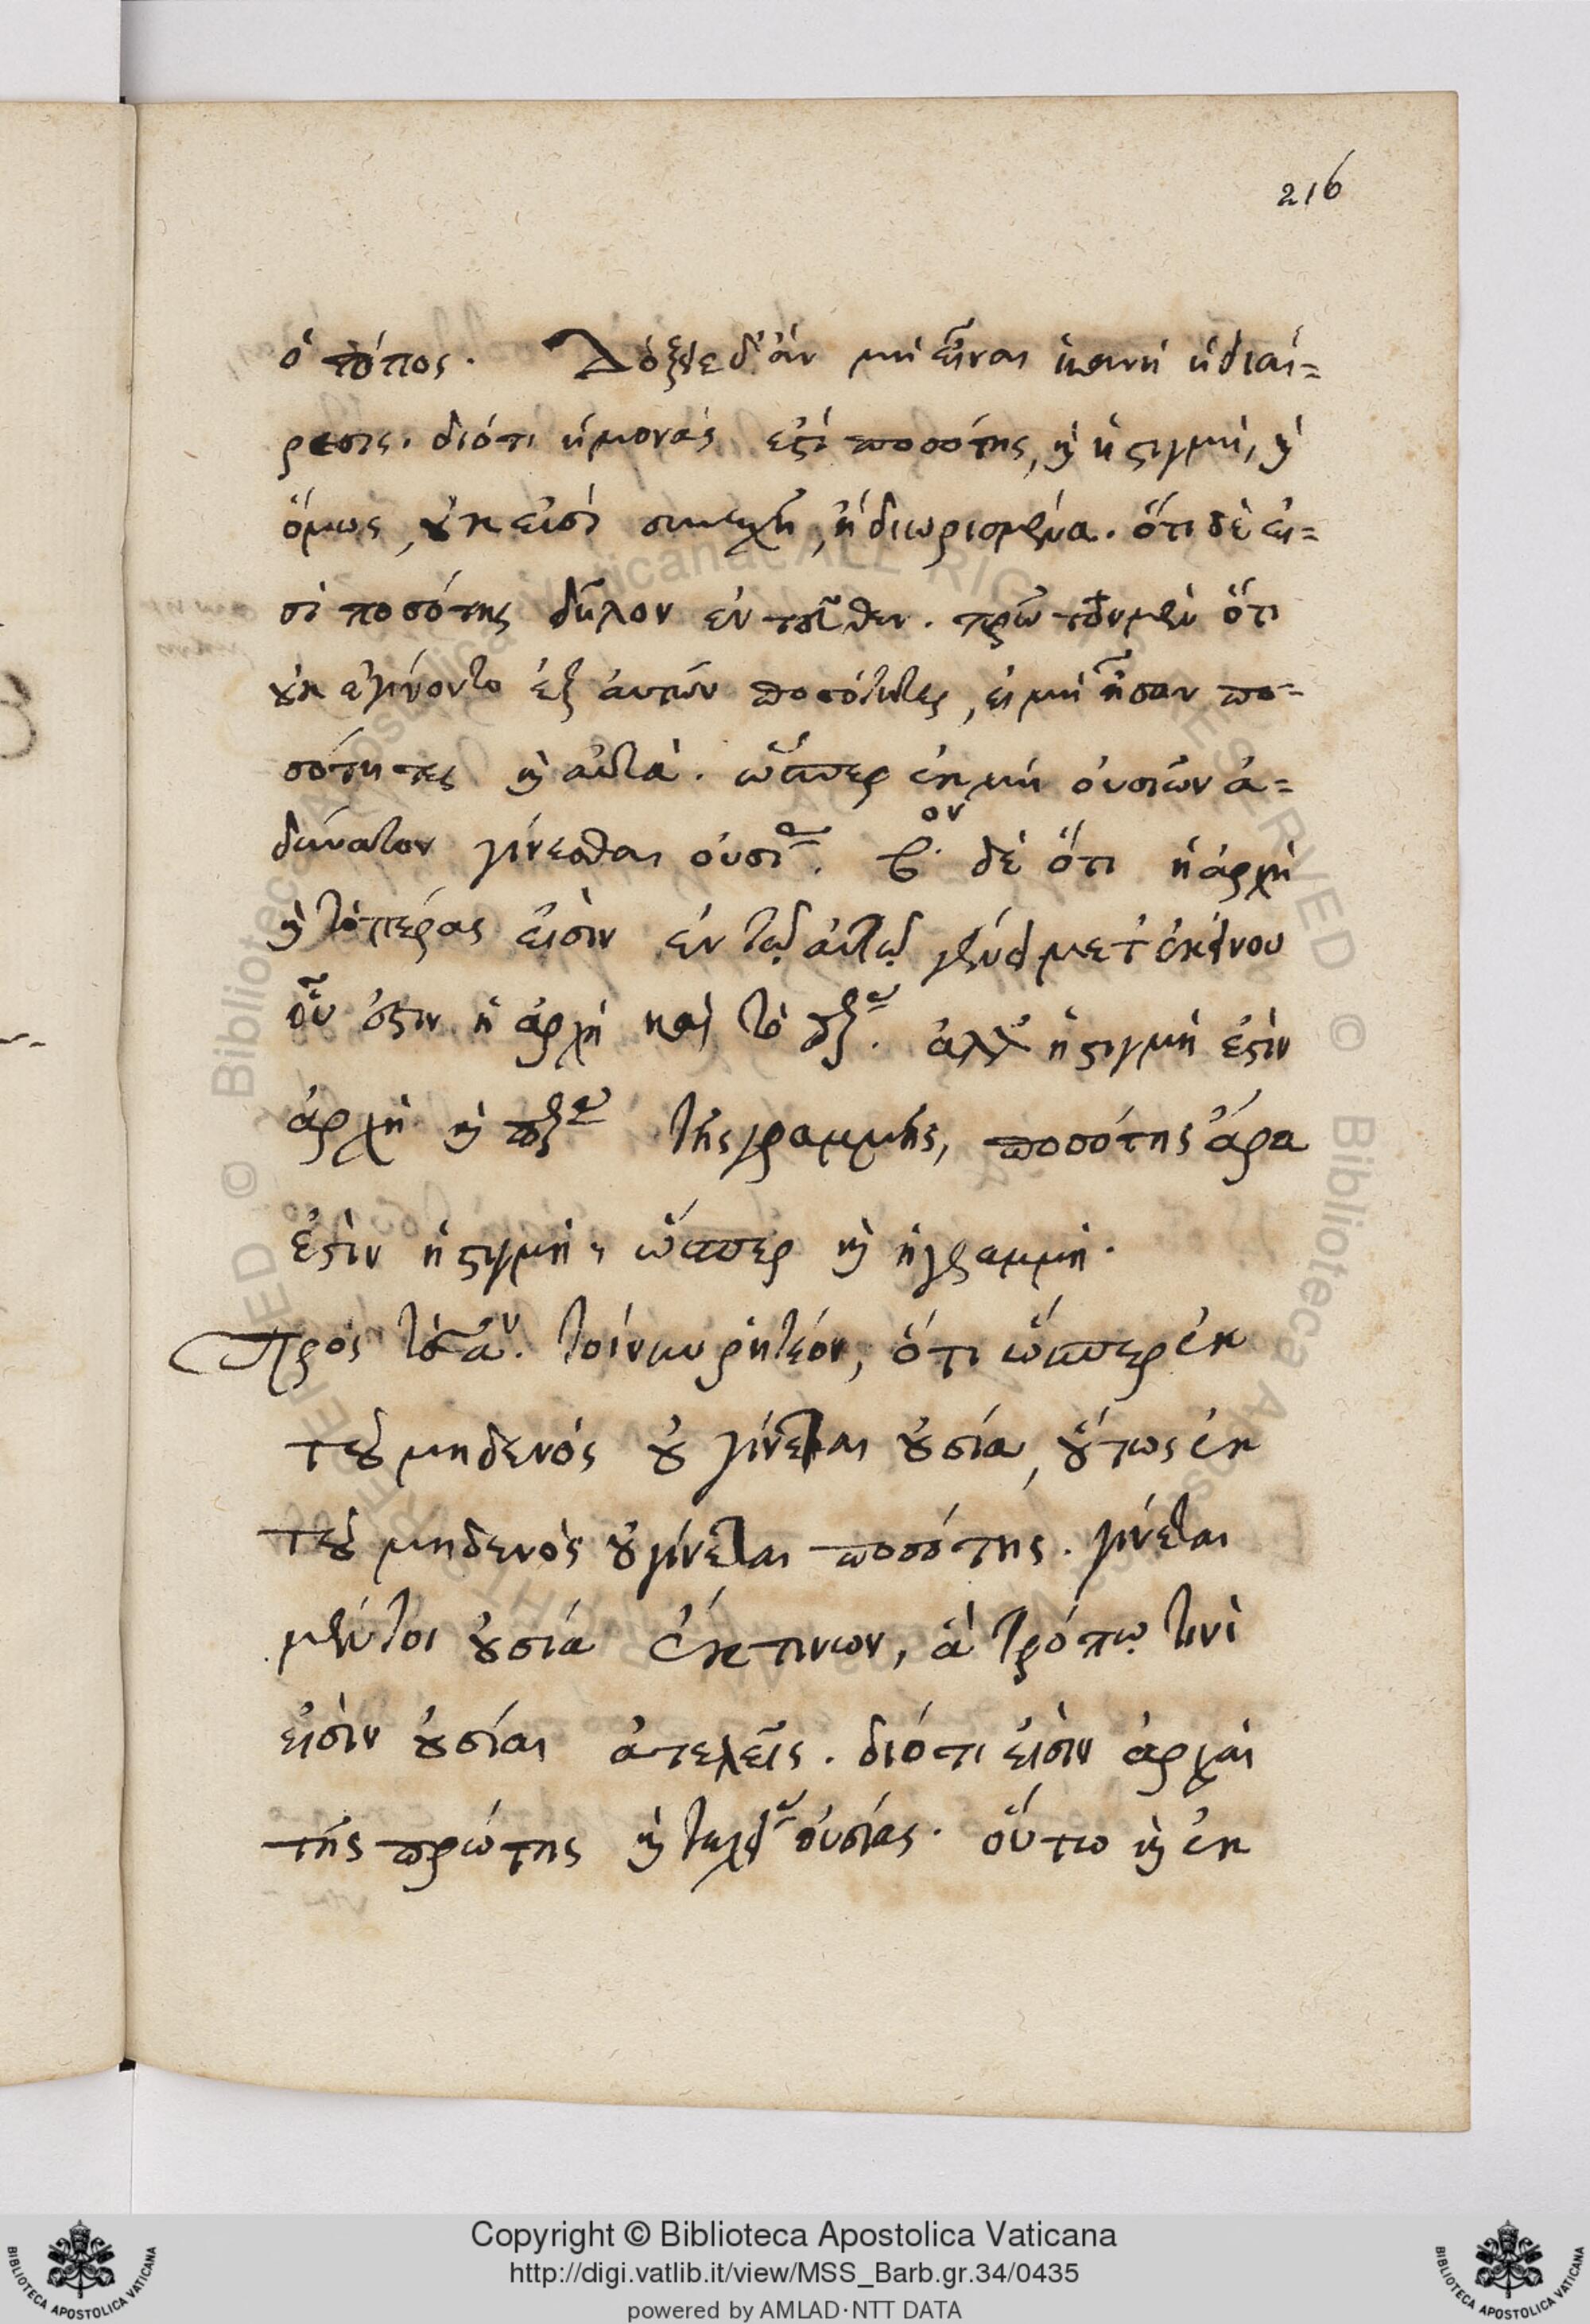 216
ὁ τόπος. Δόξειε δ' ἄν μὴ εἶναι ἱκανὴ ἡ διαί=
ρεσις. διότι ἡ μονάς ἐστὶ ποσότης, ϗ ἡ στιγμή, ϗ
ὅμως, ȣκ εἰσὶ συνεχῆ, ἢ διωρισμένα. ὅτι δὲ εἰ=
σὶ ποσότης δῆλον ἐντεῦθεν. πρῶτον μὲν ὅτι
ȣκ ἐγίνοντο ἐξ αὐτῶν ποσότητες, εἰ μὴ ἦσαν πο=
σότητες ϗ αὐτά. ὥσπερ ἐκ μὴ οὐσιῶν ἀ=
δύνατον γίνεσθαι οὐσίᾱ. β.ον δὲ ὅτι ἡ ἀρχὴ
ϗ τὸ πέρας εἰσὶν ἐν τῷ αὐτῷ γένει μετ' ἐκείνου
οὗ ἐστιν ἡ ἀρχὴ καὶ τὸ πέρας. ἀλλ' ἡ στιγμὴ ἐστὶν
ἀρχὴ ϗ πέρας τῆς γραμμῆς, ποσότης ἄρα
ἐστὶν ἡ στιγμὴ, ὥσπερ ϗ ἡ γραμμή.
Πρὸς τὸ α.ν τοίνυν ῥητέον, ὅτι ὥσπερ ἐκ
τȣ μηδενός ȣ γίνεται ȣσία, ȣτως ἐκ
τȣ μηδενὸς ȣ γίνεται ποσότης. γίνεται
μέντοι ȣσία ἔκ τινων, ἃ τρόπῳ τινὶ
εἰσὶν ȣσίαι ἀτελεῖς. διότι εἰσὶν ἀρχαὶ
τῆς πρώτης ϗ οὐσίας. οὕτω ϗ ἐκ
Copyright © Biblioteca Apostolica Vaticana
http://digi.vatlib.it/view/MSS_Barb.gr.34/0435
powered by AMLAD·NTT DATA